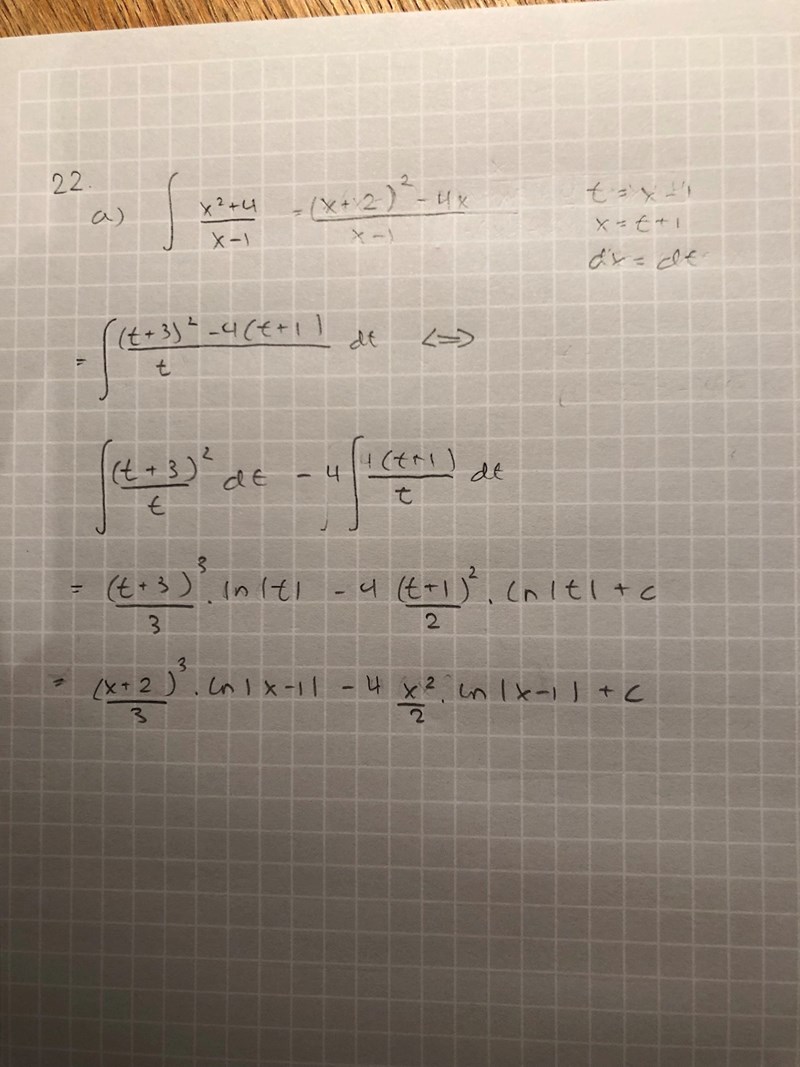 22.
a) ∫ x²+4 / x-1 = (x+2)² - 4x / x-1 t = x-1
x = t+1
dx = dt
= ∫ (t+3)² - 4(t+1) / t dt <=>
∫ (t+3)² / t dt - 4 ∫ 1(t+1) / t dt
= (t+3)³ / 3 · ln|t| - 4 (t+1)² / 2 · ln|t| + c
= (x+2)³ / 3 · ln|x-1| - 4 x² / 2 · ln|x-1| + c